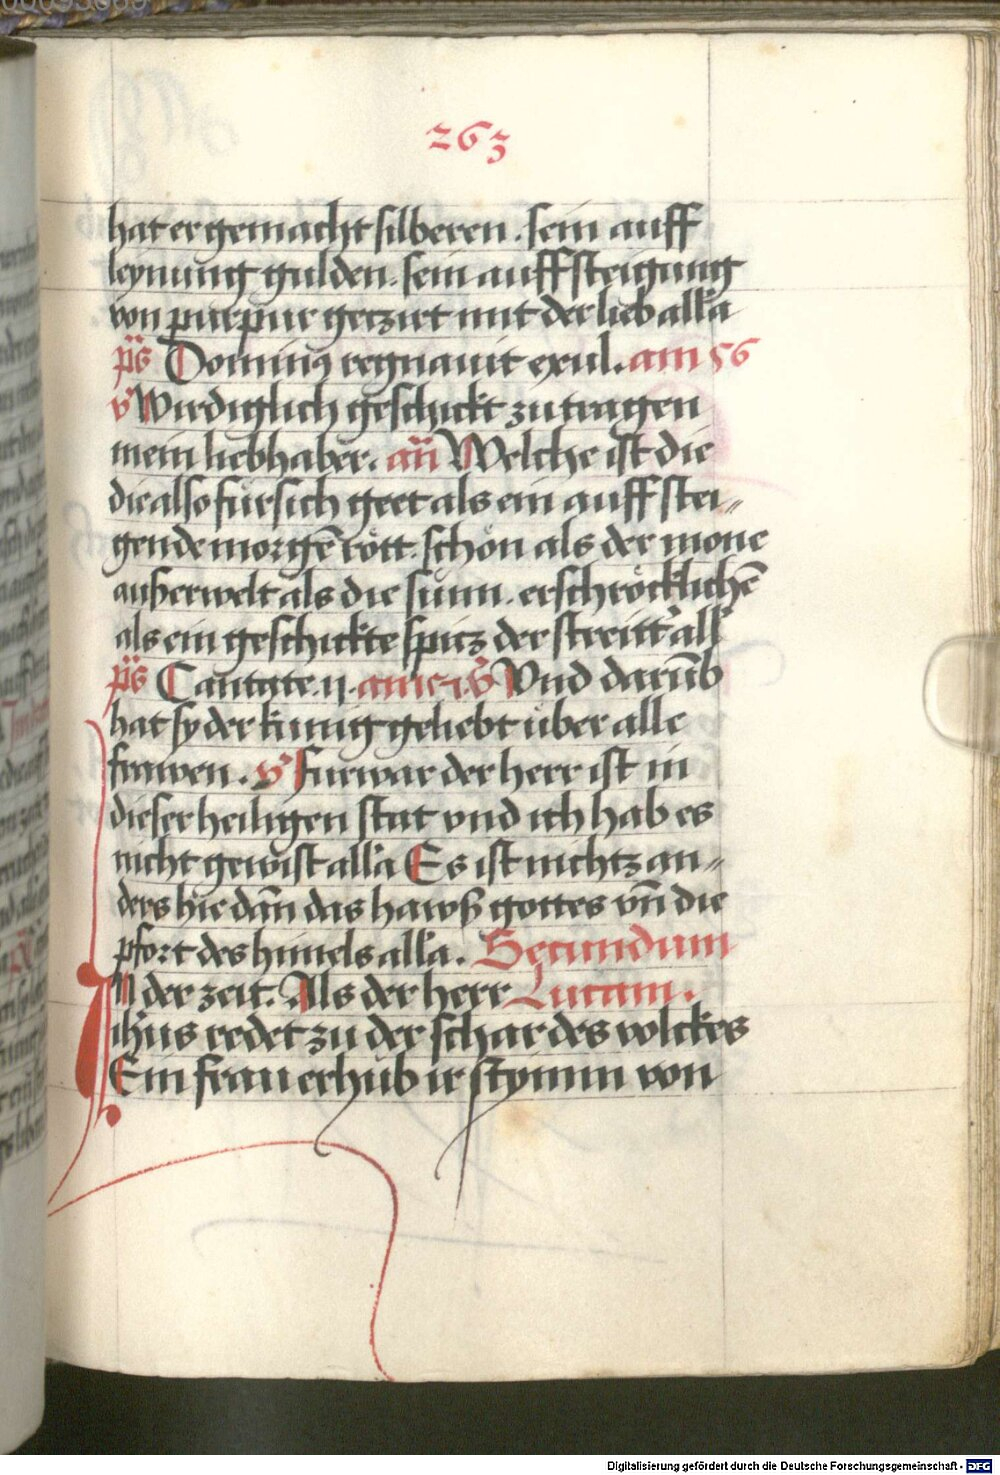 263
hat er gemacht silberen. sein auff
leynung gulden. sein auffsteigung
von purpur geczirt mit der lieb alla
ps Dominus regnauit exul. am 56
v Wirdiglich geschickt zu tragen
mein liebhaber. an Welche ist die
die also für sich geet als ein auff stei„
gende morgē rött. schön als der mone
außerwelt als die sünn. erschröcklichē
als ein geschickte spicz der streitt' all'
ps Cantate. ij. am v Vnd darūb
hat sy der kunig geliebt über alle
frawen. v Furwar der herr ist in
dieser heiligen stat vnd ich hab es
nicht gewist alla Es ist nichtz an„
ders hie dān das hawß gottes vn̄ die
pfort des himels alla. Secundum
In der zeit. Als der herr Lucam.
ihus redet zu der schar des volckes
Ein frau erhub ir stymm von
Digitalisierung gefördert durch die Deutsche Forschungsgemeinschaft - DFG